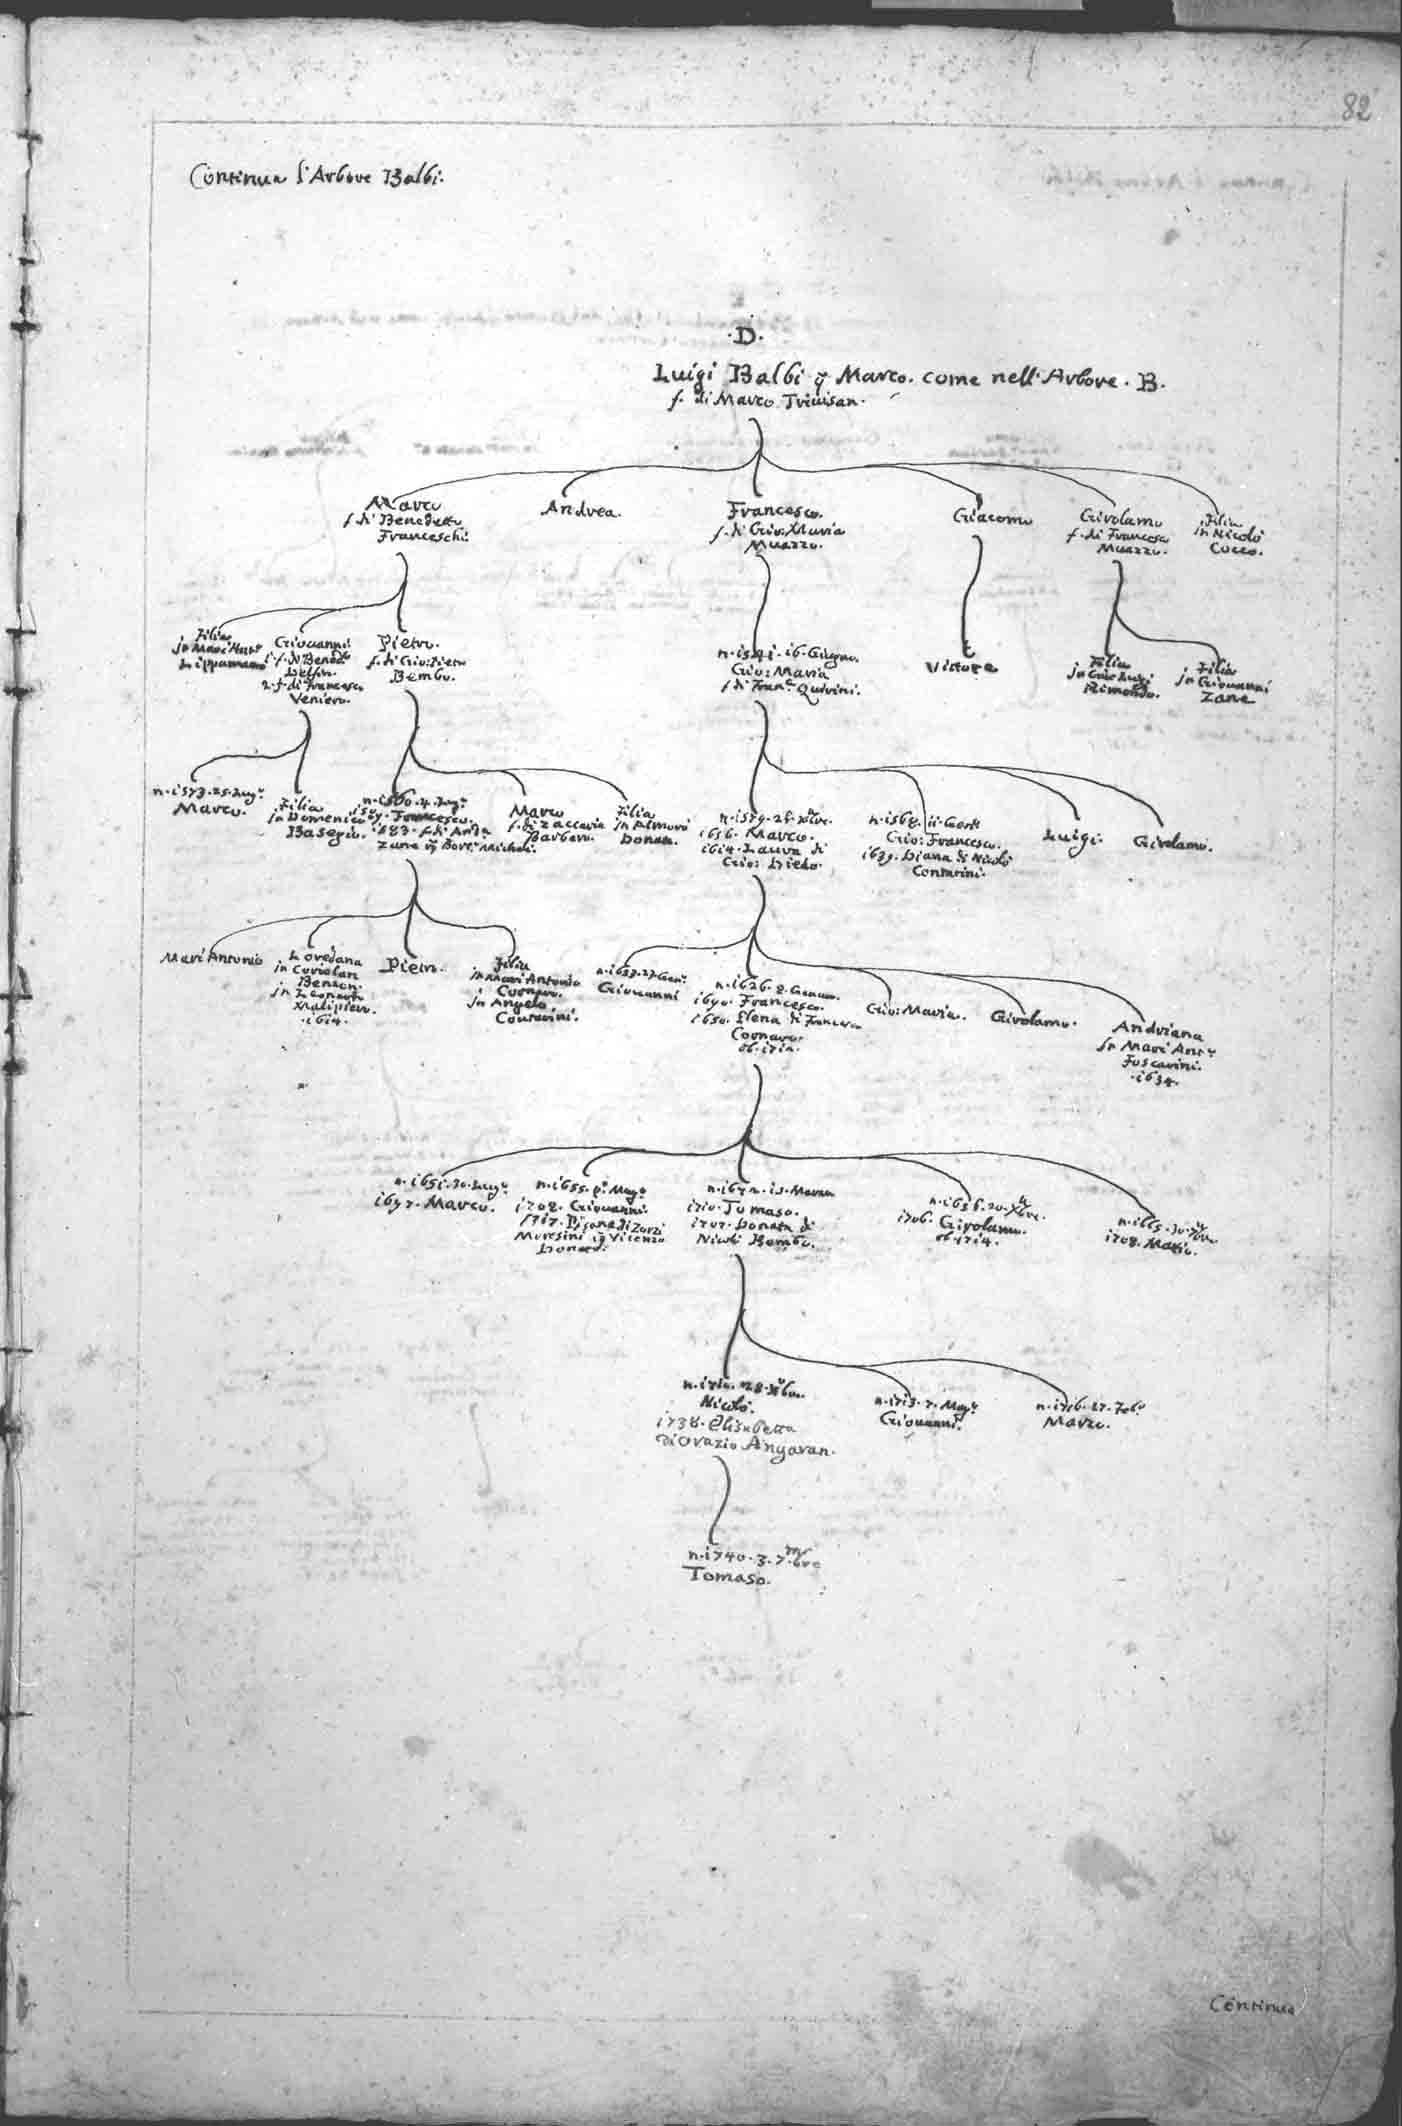 82
Continua l'Arbore Balbi.
.D.
Luigi Balbi q Marco. come nell'Arbore. B.
f. di Marco Triuisan.
Marco
f. di Benedetto
Franceschi.
Andrea.
Francesco.
f. di Gio: Maria
Muazzo.
Giacomo
Girolamo
f. di Francesco
Muazzo.
Filia
in Nicolò
Cocco.
Filia
in Marc'Ant°
Lippamano
Giouanni
1. f. di Bened°
Delfin.
2. f. di Francesco
Veniero.
Pietro.
f. di Gio: Pietro
Bembo.
n. i541. i6. Giugno.
Gio: Maria
f. di Fran.co Quirini.
Vittore
Filia
in
Rimondo.
Filia
in Giouanni
Zane
n. i573. 25. Lug°
Marco.
Filia
in Domenico
Basegio.
n. i560. 4. Lug°
Francesco.
i583. f. di And.a
Zane q Bort.° Michiel.
Marco
f. di Zaccaria
Barbaro.
Filia
in Almorò
Donato.
n. i579. 28. Xbre.
i616. Marco.
i614. Laura di
Gio: Diedo.
n. i568. ii.
Gio: Francesco.
i639. Diana di Nicolò
Contarini.
Luigi.
Girolamo.
Marc'Antonio
Loredana
in Coriolan
Benzon.
in Leonardo
Malipiero.
.i614.
Pietro.
Filia
in Marc'Antonio
Cornaro.
in Angelo
Contarini.
Giouanni
n. i626. 2. Genaro.
i690. Francesco.
i650. Elena di Francesco
Cornaro.
Gio: Maria.
Girolamo.
Andriana
in Marc'Ant.°
Foscarini.
.i634.
n. i651. 30. Lug°
i697. Marco.
n. i655. p° Mag°
i702. Giouanni.
i717. Pisana di Zorzi
Moresini q Vicenzo
Donato.
n. i672. i5. Marzo
i710. Tomaso.
i707. Donata di
Nicolò Bembo.
n. i656. 20. Xbre.
i706. Girolamo.
ob. i7i4.
n. i665. 30.
i708.
n. i710. 28. Xbre.
Nicolò.
i738. Elisabetta
di Orazio Angaran.
n. i7i3. 7. Mag°
Giouanni.
n. i7i6. 27. Feb°
Marco.
n. i740. 3. 7mbre
Tomaso.
Continua